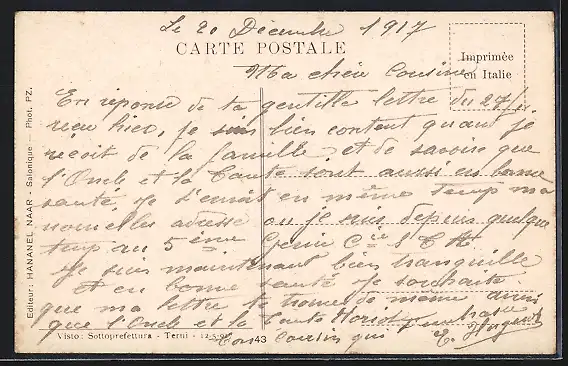 Le 20 Décembre 1917
CARTE POSTALE
Imprimée
en Italie
Ma chère Cousine
En réponse de ta gentille lettre du 27/11
reçu hier, je suis bien content quant je
reçoit de la famille et de savoir que
l'Oncle et la Tante sont aussi en bonne
santé je t'écrit en même temp ma
nouvelles adresse ou je suis depuis quelque
temp au 5 ème Génie Cie
Je suis maintenant bien tranquille
et en bonne santé je souhaite
que ma lettre te trouve de même ainsi
que l'Oncle et la Tante
Ton Cousin qui
Editeur: HANANEL NAAR - Salonique — Phot. PZ.
Visto: Sottoprefettura - Terni -
43